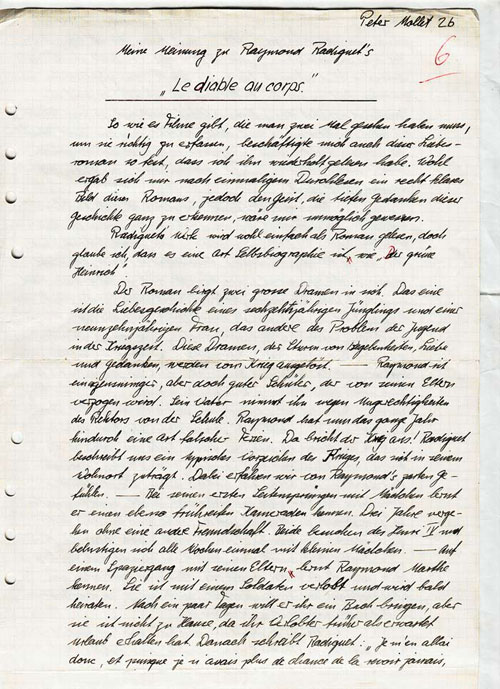 Peter Mollet 2b
6
Meine Meinung zu Raymond Radiguet's
"Le diable au corps."
So wie es Filme gibt, die man zwei Mal gesehen haben muss,
um sie richtig zu erfassen, beschäftigte mich auch dieser Liebes-
roman so fest, dass ich ihn wiederholt gelesen habe. Wohl
ergab sich mir nach einmaligem Durchlesen ein recht klares
Bild dieses Romans, jedoch den Geist, die tiefen Gedanken dieser
Geschichte ganz zu erkennen, wäre mir unmöglich gewesen.
Radiguets Werk wird wohl einfach als Roman gelesen, doch
glaube ich, dass es eine Art Selbstbiographie ist, wie "Der grüne
Heinrich".
Der Roman birgt zwei grosse Dramen in sich. Das eine
ist die Liebesgeschichte eines sechzehnjährigen Jünglings und einer
neunzehnjährigen Frau, das andere das Problem der Jugend
in der Kriegszeit. Diese Dramen, der Sturm von Begebenheiten, Liebe
und Gedanken, werden vom Krieg ausgelöst. — Raymond ist
ein eigensinniger, aber doch guter Schüler, der von seinen Eltern
verzogen wird. Sein Vater nimmt ihn wegen Ungerechtigkeiten
des Rektors von der Schule. Raymond hat nun das ganze Jahr
hindurch eine Art falscher Ferien. Da bricht der Krieg aus! Radiguet
beschreibt uns ein Vorzeichen des Krieges, das sich in seinem
Wohnort zuträgt. Dabei erfahren wir von Raymond's zarten Ge-
fühlen. — Bei seinen ersten Seitensprüngen mit Mädchen lernt
er einen ebenso frühreifen Kameraden kennen. Drei Jahre verge-
hen ohne eine andere Freundschaft. Beide besuchen das Henri IV und
belustigen sich alle Wochen einmal mit kleinen Mädchen. — Auf
einem Spaziergang mit seinen Eltern lernt Raymond Marthe
kennen. Sie ist mit einem Soldaten verlobt und wird bald
heiraten. Nach ein paar Tagen will er ihr ein Buch bringen, aber
sie ist nicht zu Hause, da ihr Verlobter früher als erwartet
Urlaub erhalten hat. Danach schreibt Radiguet: "Je m'en allai
donc, et puisque je n'avais plus de chance de la revoir jamais,